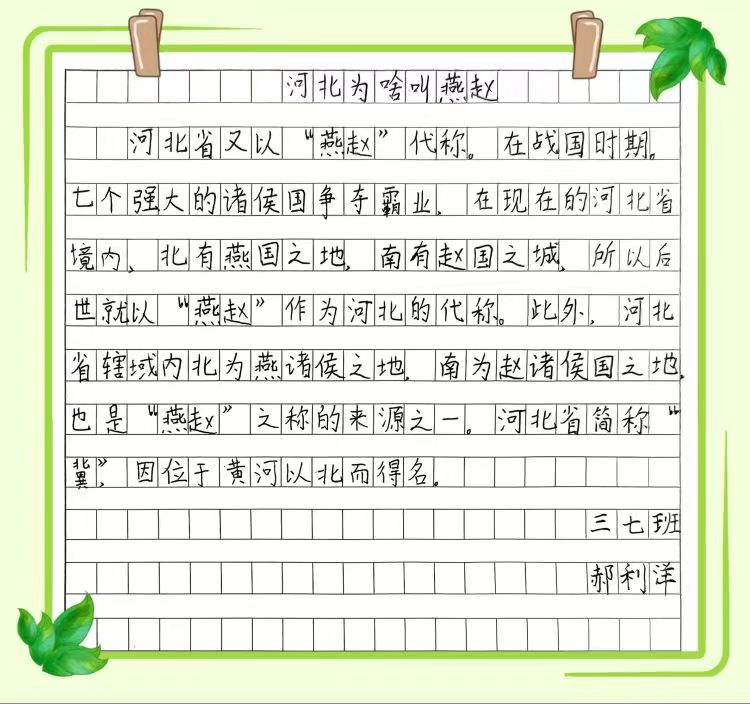 河北为啥叫燕赵
河北省又以“燕赵”代称。在战国时期。
七个强大的诸侯国争夺霸业，在现在的河北省
境内，北有燕国之地，南有赵国之城，所以后
世就以“燕赵”作为河北的代称。此外，河北
省辖域内北为燕诸侯之地，南为赵诸侯国之地，
也是“燕赵”之称的来源之一。河北省简称“
冀”，因位于黄河以北而得名。
三七班
郝利洋